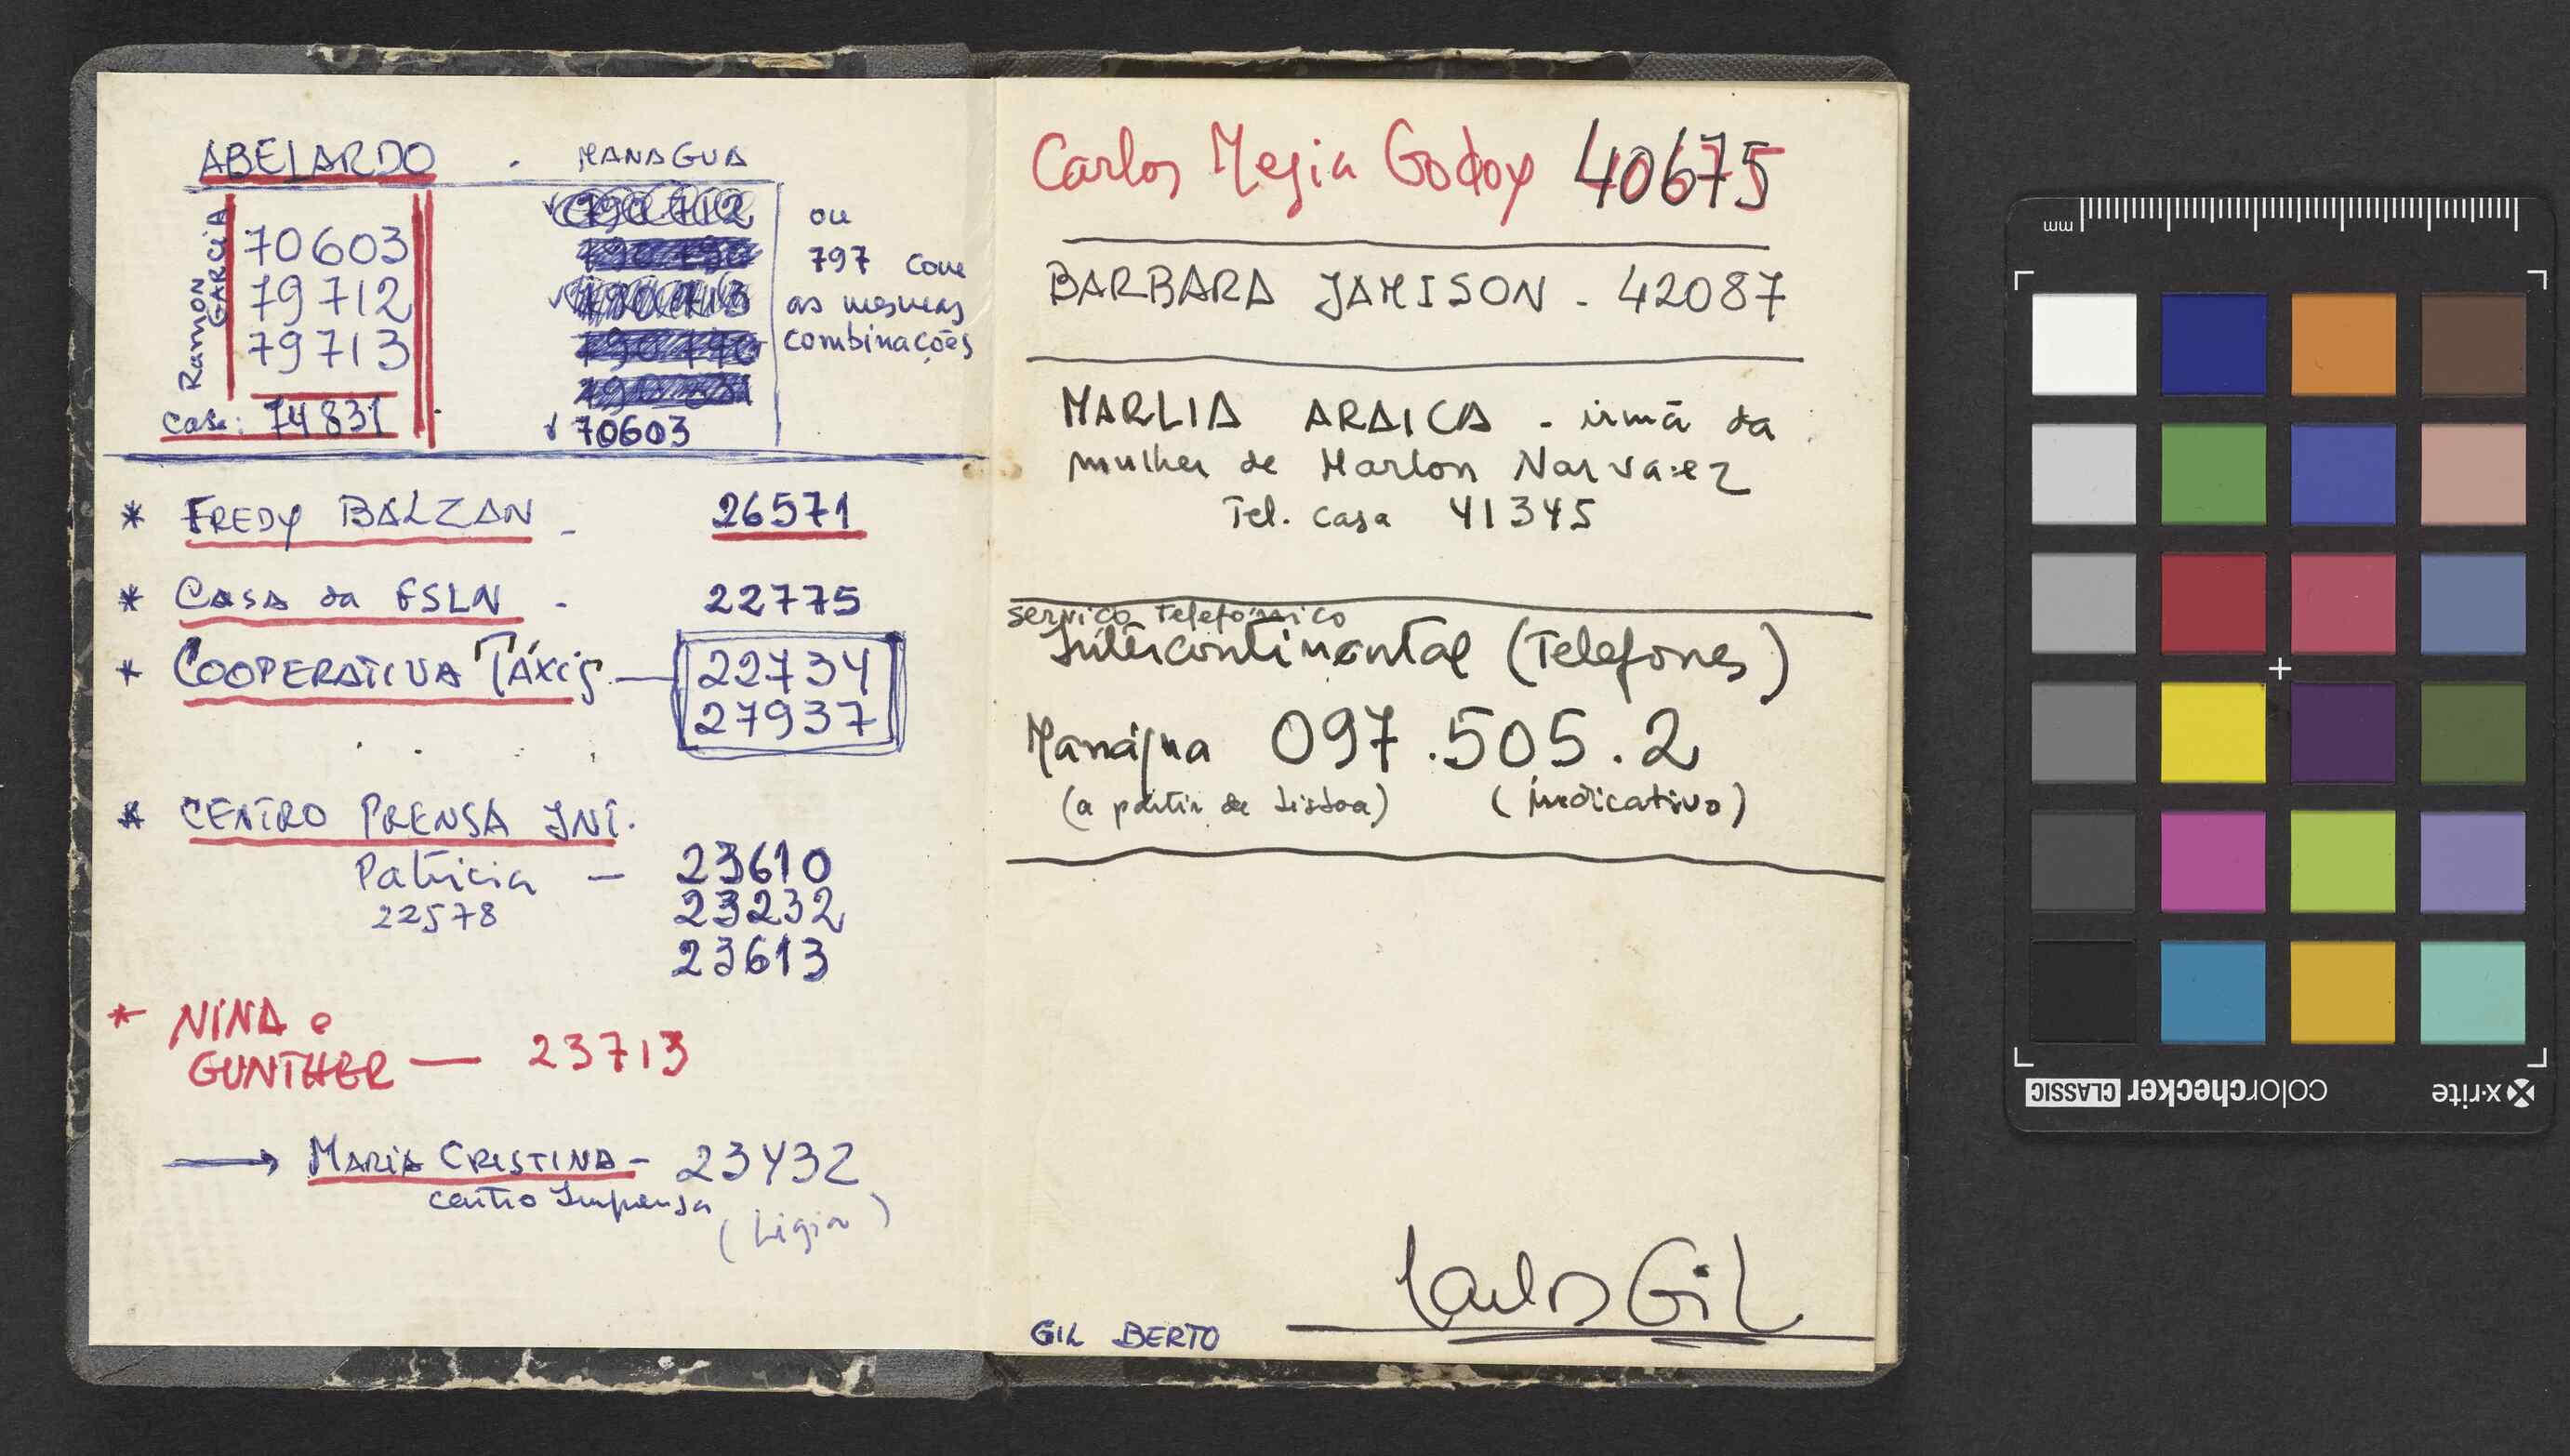 ABELARDO - MANAGUA
Ramon GARCIA
70603
79712
79713
casa: 74831
70603
ou
797 com
as mesmas
combinações
* FREDY BALZAN - 26571
* CASA da FSLN - 22775
* COOPERATIVA TÁXIS — 22734
27937
* CENTRO PRENSA INT.
Patricia — 23610
22578
23232
23613
* NINA e
GUNTHER — 23713
→ MARIA CRISTINA - 23432
centro Imprensa
(Ligia)
Carlos Mejia Godoy 40675
BARBARA JAMISON - 42087
MARLIA ARAICA - irmã da
mulher de Marlon Narvaez
Tel. casa 41345
serviço telefónico
Intercontinental (Telefones)
Manágua 097.505.2
(a partir de Lisboa) (indicativo)
Carlos Gil
GIL BERTO
mm
x-rite
colorchecker CLASSIC